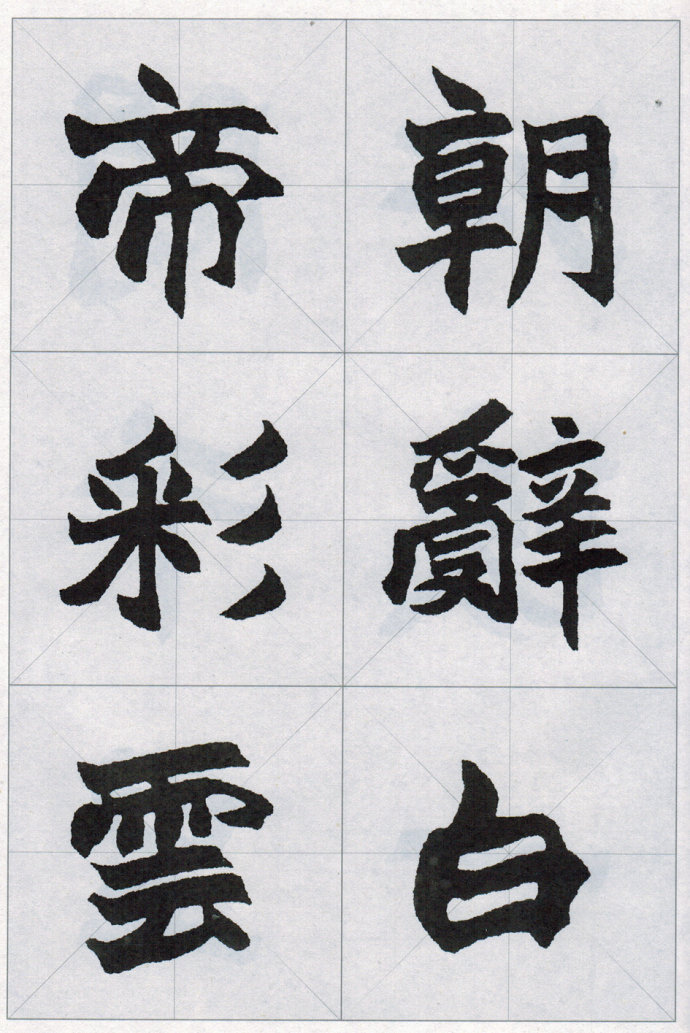 朝辭白
帝彩雲